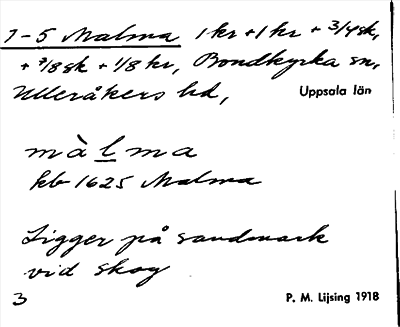 1-5 Malma 1 kr + 1 kr + 3/4 sk,
+ 7/8 sk + 1/8 kr, Bondkyrka sn,
Ulleråkers hd, Uppsala län
màlma
kb 1625 Malma
Ligger på sandmark
vid skog
3 P. M. Lijsing 1918